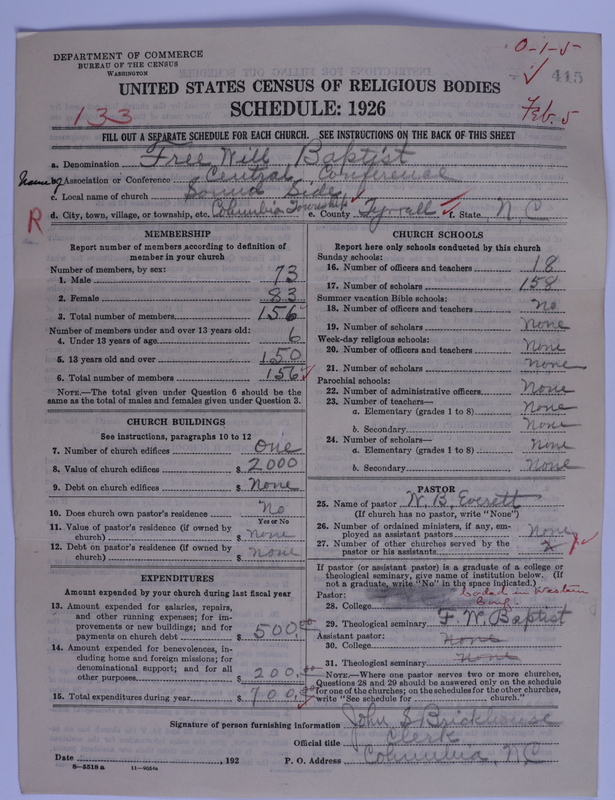 DEPARTMENT OF COMMERCE
BUREAU OF THE CENSUS
WASHINGTON
0-1-5
415
UNITED STATES CENSUS OF RELIGIOUS BODIES
SCHEDULE: 1926
133
Feb. 5
FILL OUT A SEPARATE SCHEDULE FOR EACH CHURCH. SEE INSTRUCTIONS ON THE BACK OF THIS SHEET
a. Denomination Free Will Baptist
Name of b. Association or Conference Central Conference
c. Local name of church Sound Side
R d. City, town, village, or township, etc. Columbia Township e. County Tyrrell f. State N.C
MEMBERSHIP
Report number of members according to definition of
member in your church
Number of members, by sex:
1. Male 73
2. Female 83
3. Total number of members 156
Number of members under and over 13 years old:
4. Under 13 years of age 6
5. 13 years old and over 150
6. Total number of members 156
NOTE.—The total given under Question 6 should be
same as the total of males and females given under Question 3.
CHURCH BUILDINGS
See instructions, paragraphs 10 to 12
7. Number of church edifices One
8. Value of church edifices $ 2000
9. Debt on church edifices $ None
10. Does church own pastor's residence No
Yes or No
11. Value of pastor's residence (if owned by
church) $ none
12. Debt on pastor's residence (if owned by
church) $ none
EXPENDITURES
Amount expended by your church during last fiscal year
13. Amount expended for salaries, repairs,
and other running expenses; for im-
provements or new buildings; and for
payments on church debt $ 500.00
14. Amount expended for benevolences, in-
cluding home and foreign missions; for
denominational support; and for all
other purposes $ 200.00
15. Total expenditures during year $ 700.00
CHURCH SCHOOLS
Report here only schools conducted by this church
Sunday schools:
16. Number of officers and teachers 18
17. Number of scholars 158
Summer vacation Bible schools:
18. Number of officers and teachers No
19. Number of scholars None
Week-day religious schools:
20. Number of officers and teachers None
21. Number of scholars none
Parochial schools:
22. Number of administrative officers None
23. Number of teachers—
a. Elementary (grades 1 to 8) None
b. Secondary None
24. Number of scholars—
a. Elementary (grades 1 to 8) None
b. Secondary None
PASTOR
25. Name of pastor W. B. Everett
(If church has no pastor, write "None")
26. Number of ordained ministers, if any, em-
ployed as assistant pastors None
27. Number of other churches served by the
pastor or his assistants
If pastor (or assistant pastor) is a graduate of a college or
theological seminary, give name of institution below. (If
not a graduate, write "No" in the space indicated.)
Pastor: in Western
28. College
29. Theological seminary F. W. Baptist
Assistant pastor:
30. College None
31. Theological seminary None
NOTE.—Where one pastor serves two or more churches,
Questions 28 and 29 should be answered only on the schedule
for one of the churches; on the schedules for the other churches,
write "See schedule for church."
Signature of person furnishing information John S Brickhouse
Official title Clerk
Date , 192 P. O. Address Columbia, N.C
8—5518 a 11—9054a